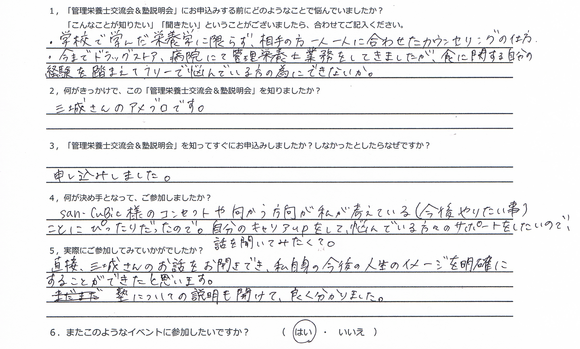 1，「管理栄養士交流会＆塾説明会」にお申込みする前にどのようなことで悩んでいましたか？
「こんなことが知りたい」「聞きたい」ということがございましたら、合わせてご記入ください。
・学校で学んだ栄養学に限らず、相手の方一人一人に合わせたカウンセリングの仕方
・今までドラッグストア、病院にて管理栄養士業務をしてきましたが、食に関する自分の
経験を踏まえてフリーで悩んでいる方の為にできないか。
2，何がきっかけで、この「管理栄養士交流会＆塾説明会」を知りましたか？
三城さんのアメブロです。
3，「管理栄養士交流会＆塾説明会」を知ってすぐにお申込みしましたか？しなかったとしたらなぜですか？
申し込みしました。
4，何が決め手となって、ご参加しましたか？
san-CuBic様のコンセプトや向かう方向が私が考えている(今後やりたい事)
ことにぴったりだったので。自分のキャリアupをして、悩んでいる方々のサポートをしたいので、
話を聞いてみたくて。
5，実際にご参加してみていかがでしたか？
直接、三城さんのお話をお聞きでき、私自身の今後の人生のイメージを明確に
することができたと思います。
まだまだ 塾についての説明も聞けて、良く分かりました。
6，またこのようなイベントに参加したいですか？ （ はい ・ いいえ ）